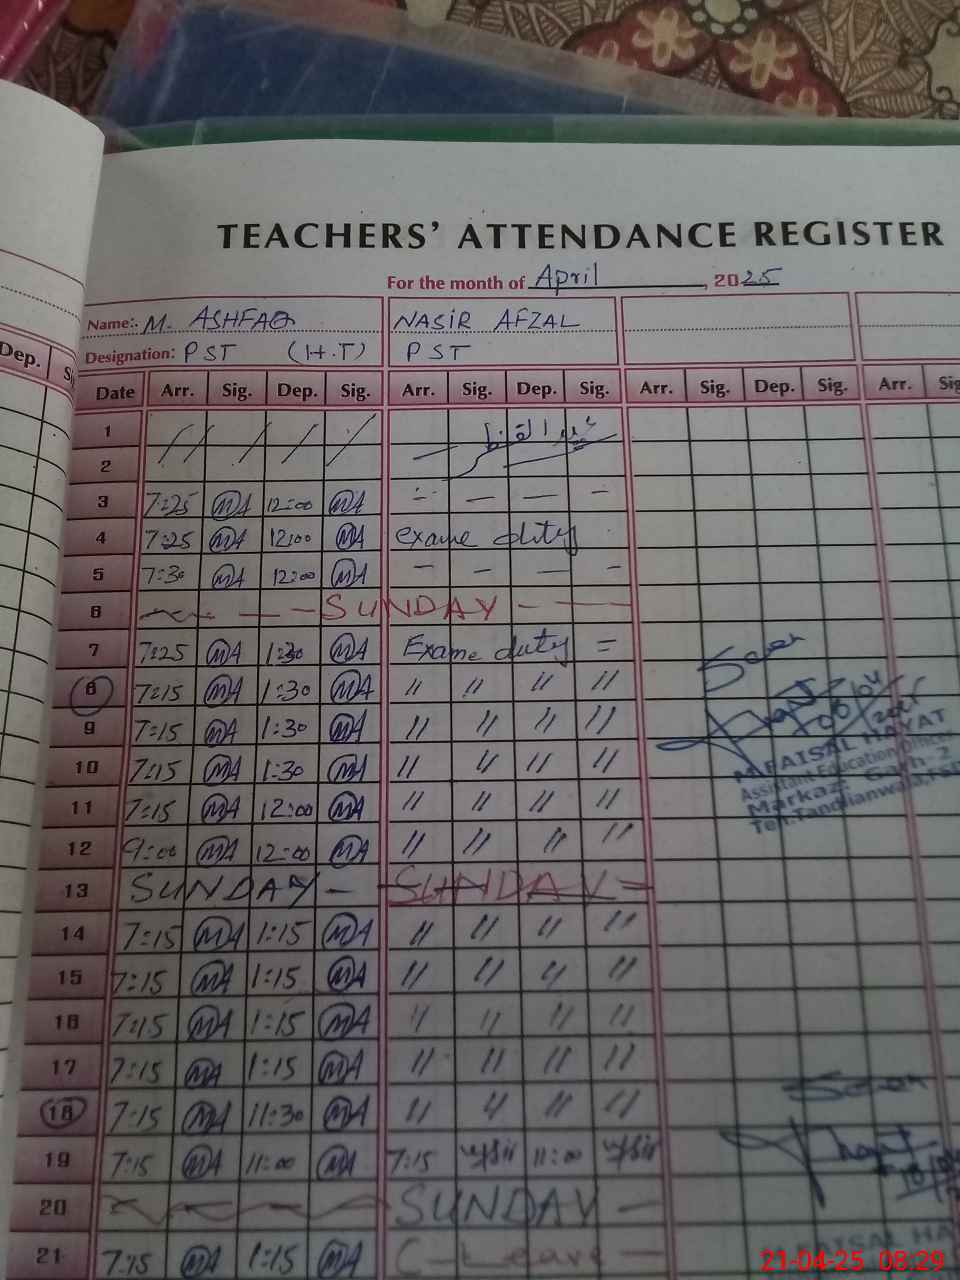 TEACHERS' ATTENDANCE REGISTER
For the month of April, 2025
Name:. M. ASHFAQ NASIR AFZAL
Designation: PST (H.T) PST
Dep.
Date Arr. Sig. Dep. Sig. Arr. Sig. Dep. Sig. Arr. Sig. Dep. Sig. Arr. Sig
1 / / / / /
2
3 7:25 MA 12:00 MA — — —
4 7:25 MA 12:00 MA exame duty
5 7:30 MA 12:00 MA — — — —
6 — — SUNDAY - — —
7 7:25 MA 1:30 MA Exame duty =
8 7:15 MA 1:30 MA " " " "
9 7:15 MA 1:30 MA " " " "
10 7:15 MA 1:30 MA " " " "
11 7:15 MA 12:00 MA " " " "
12 9:00 MA 12:00 MA " " " "
13 SUNDAY - SUNDAY =
14 7:15 MA 1:15 MA " " " "
15 7:15 MA 1:15 MA " " " "
16 7:15 MA 1:15 MA " " " "
17 7:15 MA 1:15 MA " " " "
18 7:15 MA 11:30 MA " " " "
19 7:15 MA 11:00 MA 7:15 11:00
20 SUNDAY —
21 7:15 MA 1:15 MA C - Leave -
Seen
M.FAISAL HAYAT
Assistant Education Officer
Markaz: Garh-2
Teh.Tandlianwala,
Seen
FAISAL HA
21-04-25 08:29